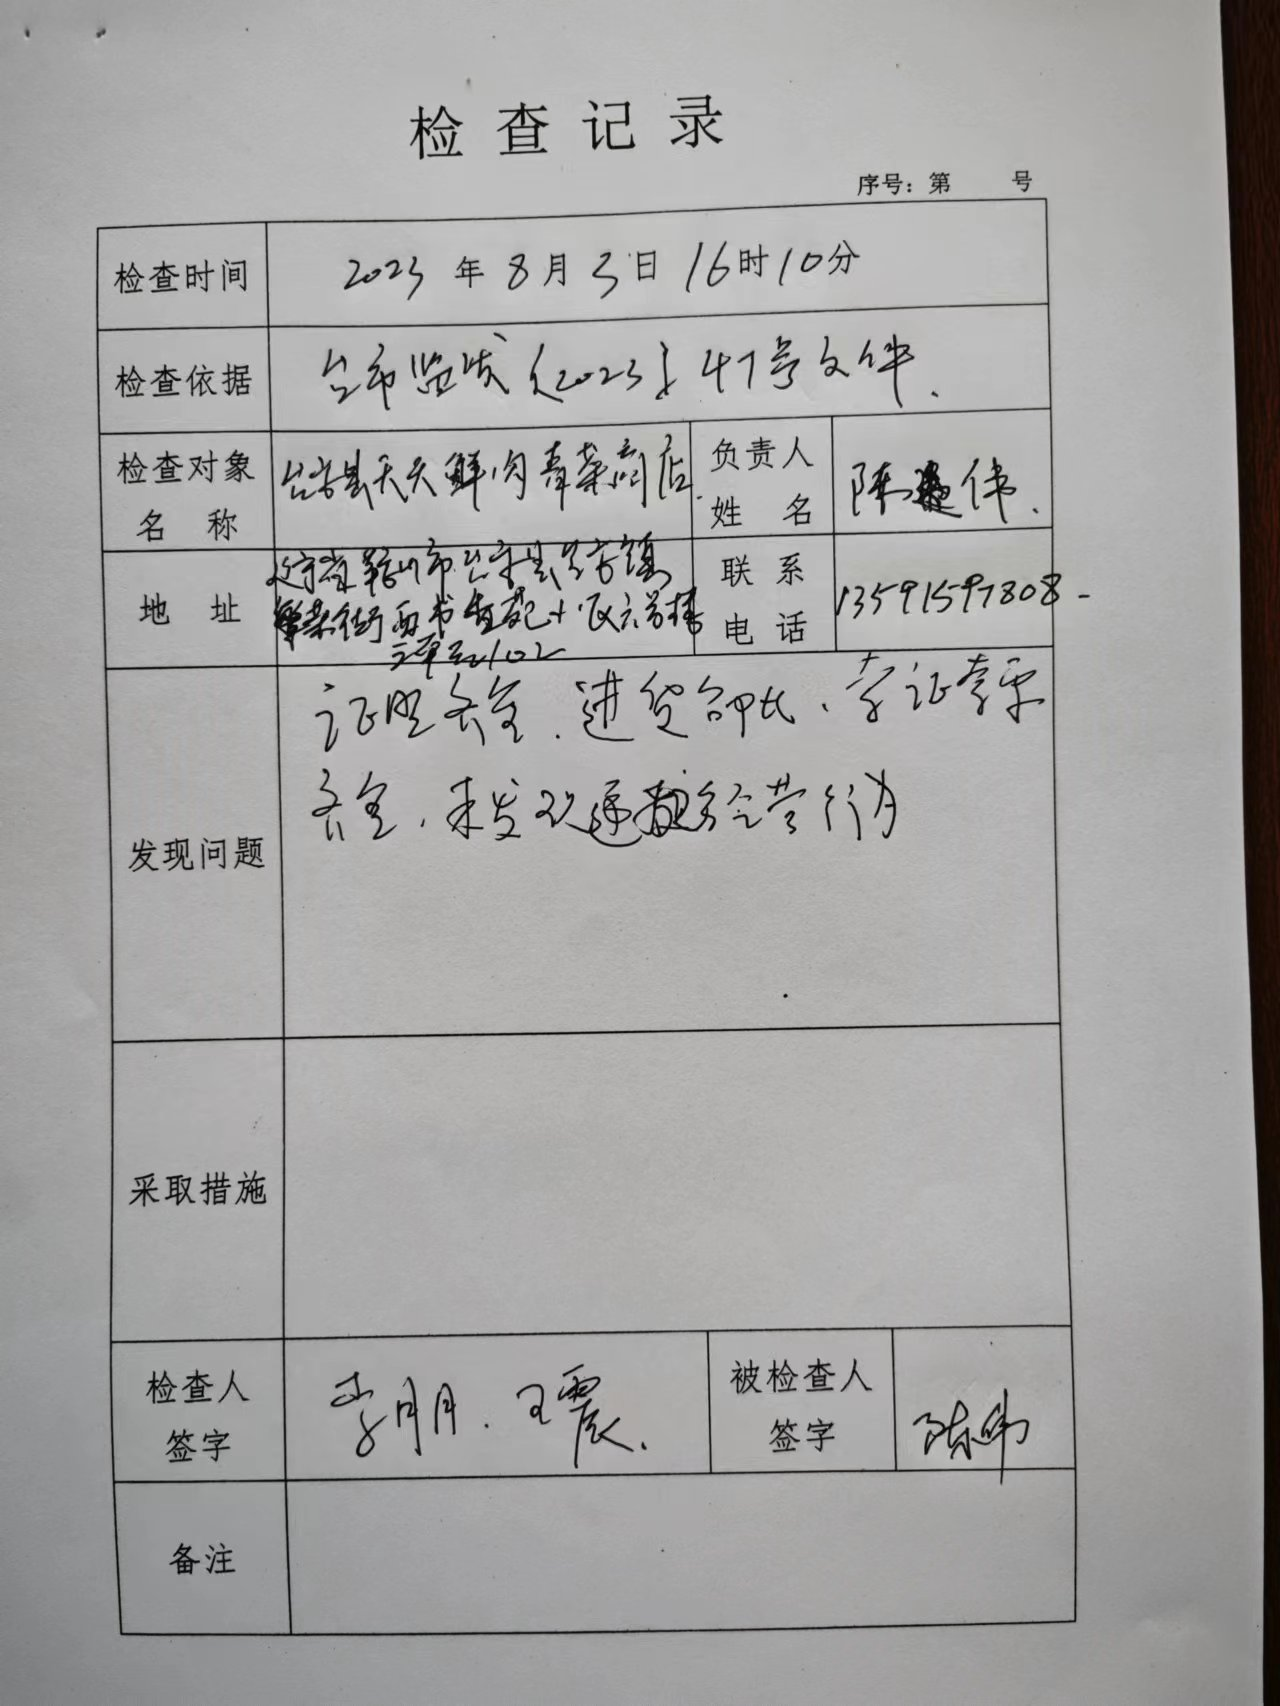 检查记录
序号：第 号
检查时间 2023年8月3日16时10分
检查依据 台市监发〔2023〕47号文件.
检查对象 台安县天天鲜肉青菜商店 负责人 陈伟.
名 称 姓 名
地 址 辽宁省鞍山市台安县台安镇 联 系 13591597808
繁荣街西书 区六号楼 电 话
单元102
证照齐全.进货 .索证索票
发现问题 齐全.未发现违 经营行为
采取措施
检查人 李明月.王震. 被检查人 陈伟
签字 签字
备注